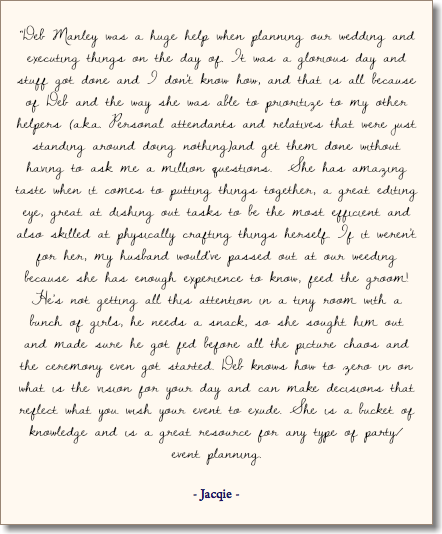 "Deb Manley was a huge help when planning our wedding and
executing things on the day of. It was a glorious day and
stuff got done and I don't know how, and that is all because
of Deb and the way she was able to prioritize to my other
helpers (a.k.a. Personal attendants and relatives that were just
standing around doing nothing)and get them done without
having to ask me a million questions. She has amazing
taste when it comes to putting things together, a great editing
eye, great at dishing out tasks to be the most efficient and
also skilled at physically crafting things herself. If it weren't
for her, my husband would've passed out at our weeding
because she has enough experience to know, feed the groom!
He's not getting all this attention in a tiny room with a
bunch of girls, he needs a snack, so she sought him out
and made sure he got fed before all the picture chaos and
the ceremony even got started. Deb knows how to zero in on
what is the vision for your day and can make decisions that
reflect what you wish your event to exude. She is a bucket of
knowledge and is a great resource for any type of party/
event planning.
- Jacqie -